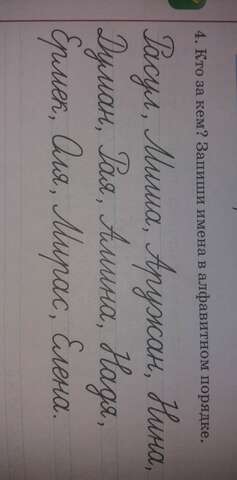 4. Кто за кем? Запиши имена в алфавитном порядке.
Расул, Миша, Аружан, Нина,
Думан, Рая, Алина, Надя,
Ермек, Оля, Мирас, Елена.